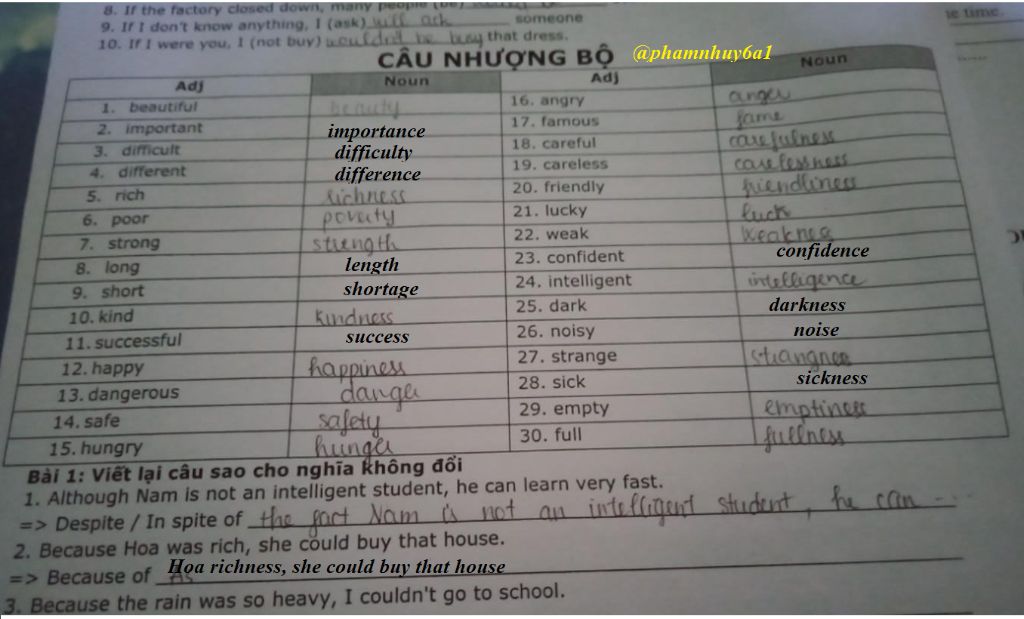 8. If the factory closed down, many people (be)
9. If I don't know anything, I (ask) will ask someone
10. If I were you, I (not buy) wouldn't be buy that dress.
e time.
CÂU NHƯỢNG BỘ @phamnhuy6a1
Adj Noun Adj Noun
1. beautiful beauty 16. angry anger
2. important importance 17. famous fame
3. difficult difficulty 18. careful carefulness
4. different difference 19. careless carelessness
5. rich richness 20. friendly friendliness
6. poor poverty 21. lucky luck
7. strong strength 22. weak weakness
8. long length 23. confident confidence
9. short shortage 24. intelligent intelligence
10. kind kindness 25. dark darkness
11. successful success 26. noisy noise
12. happy happiness 27. strange strangness
13. dangerous danger 28. sick sickness
14. safe safety 29. empty emptiness
15. hungry hunger 30. full fullness
Bài 1: Viết lại câu sao cho nghĩa không đổi
1. Although Nam is not an intelligent student, he can learn very fast.
=> Despite / In spite of the fact Nam is not an intelligent student, he can ...
2. Because Hoa was rich, she could buy that house.
=> Because of Hoa richness, she could buy that house
3. Because the rain was so heavy, I couldn't go to school.